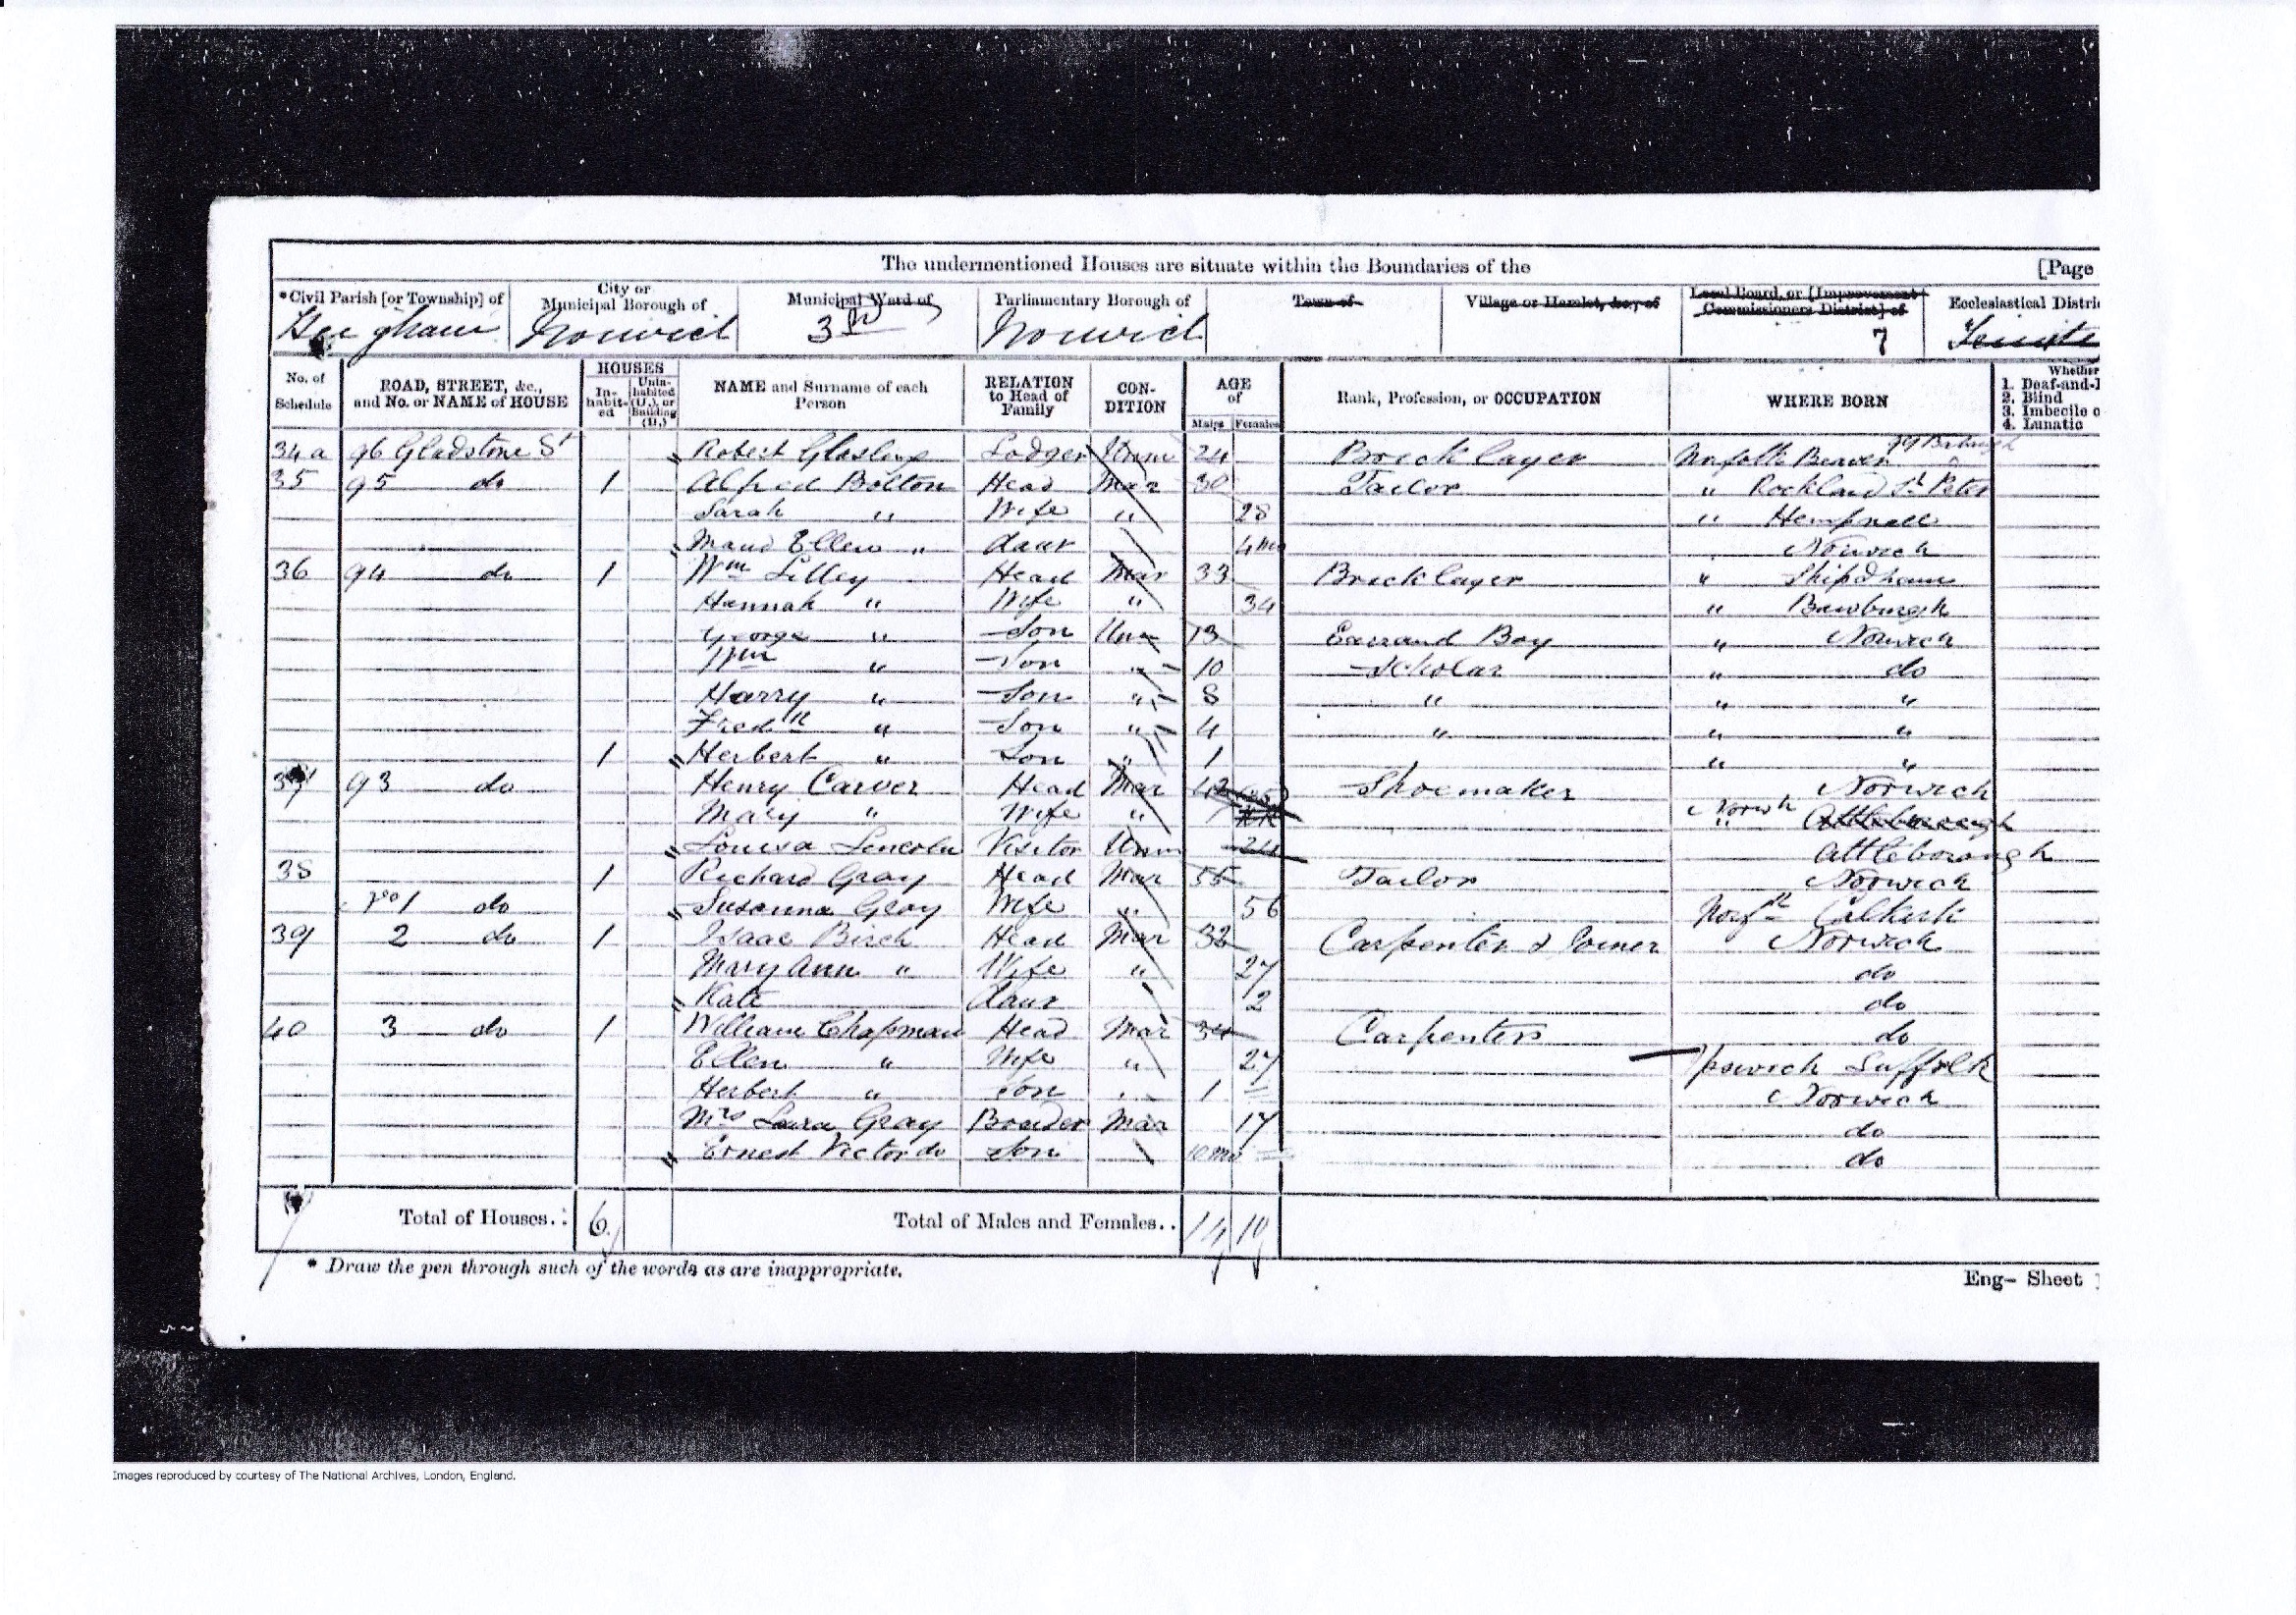 The undermentioned Houses are situate within the Boundaries of the [Page
*Civil Parish [or Township] of City or Municipal Borough of Municipal Ward of Parliamentary Borough of Town of Village or Hamlet, &c., of Local Board, or [Improvement Commissioners District] of Ecclesiastical Distric
Heigham Norwich 3rd Norwich 7
No. of Schedule ROAD, STREET, &c., and No. or NAME of HOUSE HOUSES In-habit-ed Unin-habited (U.), or Building (B.) NAME and Surname of each Person RELATION to Head of Family CON-DITION AGE of Males Females Rank, Profession, or OCCUPATION WHERE BORN Whether
1. Deaf-and-
2. Blind
3. Imbecile o
4. Lunatic
34a 96 Gladstone St Robert Lodger Unm 24 Bricklayer Norfolk
35 95 do 1 Alfred Bolton Head Mar 30 Tailor " Rockland St Peter
Sarah " Wife " 28 " Hempnall
Maud Ellen " daur 4mo Norwich
36 94 do 1 Wm Lilley Head Mar 33 Bricklayer " Shipdham
Hannah " Wife " 34 " Bawburgh
George " Son Unm 13 Errand Boy " Norwich
Wm " Son " 10 Scholar " do
Harry " Son " 8 " " "
Fredk " Son " 4 " " "
1 Herbert " Son " 1 " "
37 93 do Henry Carver Head Mar Shoemaker Norwich
Mary " Wife " Norwh Attleborough
Louisa Lincoln Visitor Unm 24 Attleborough
38 1 Richard Gray Head Mar 55 Tailor Norwich
No 1 do Susanna Gray Wife " 56 Norf
39 2 do 1 Isaac Birch Head Mar 32 Carpenter & Joiner Norwich
Mary Ann " Wife " 27 do
Kate daur 2 do
40 3 do 1 William Chapman Head Mar 34 Carpenters do
Ellen " Wife " 27 Ipswich Suffolk
Herbert " Son 1 Norwich
Mrs Laura Gray Boarder Mar 17 do
Ernest Victor do Son 10mo do
Total of Houses.. 6 Total of Males and Females.. 14 10
* Draw the pen through such of the words as are inappropriate.
Eng- Sheet
Images reproduced by courtesy of The National Archives, London, England.